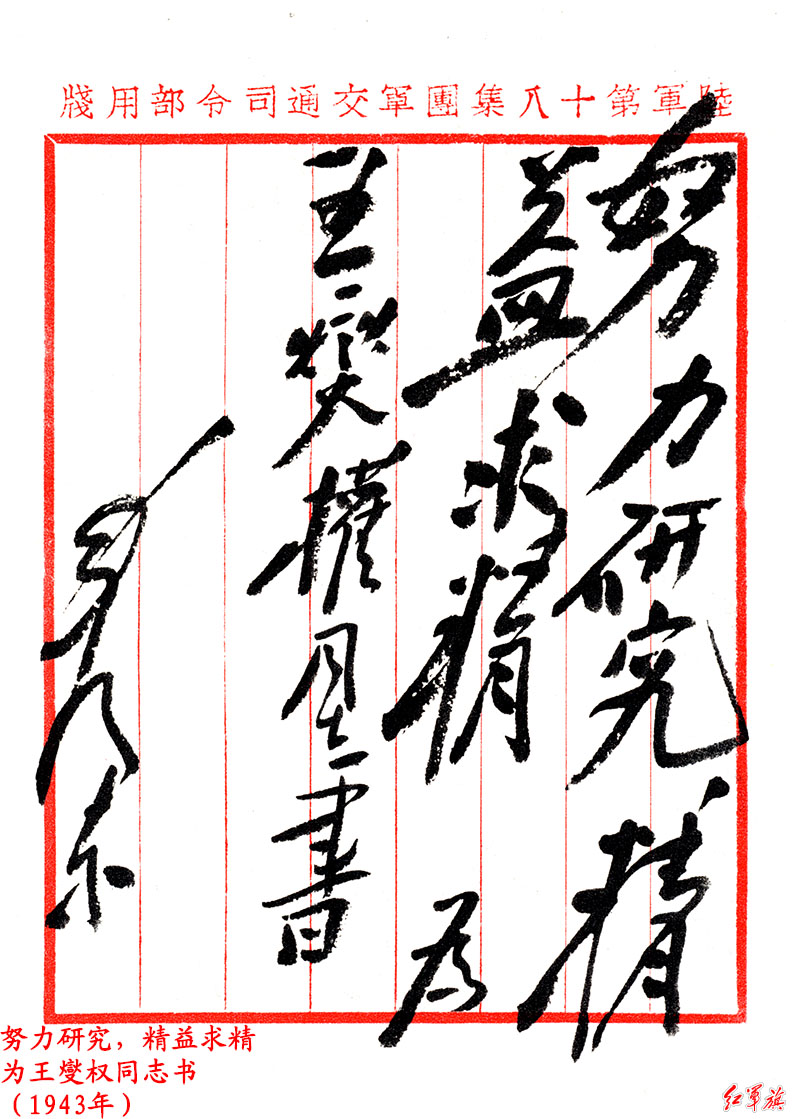 陸軍第十八集團軍交通司令部用牋
努力研究精
益求精 为
王燮權同志書
努力研究，精益求精
为王燮权同志书
（1943年）
红军旗